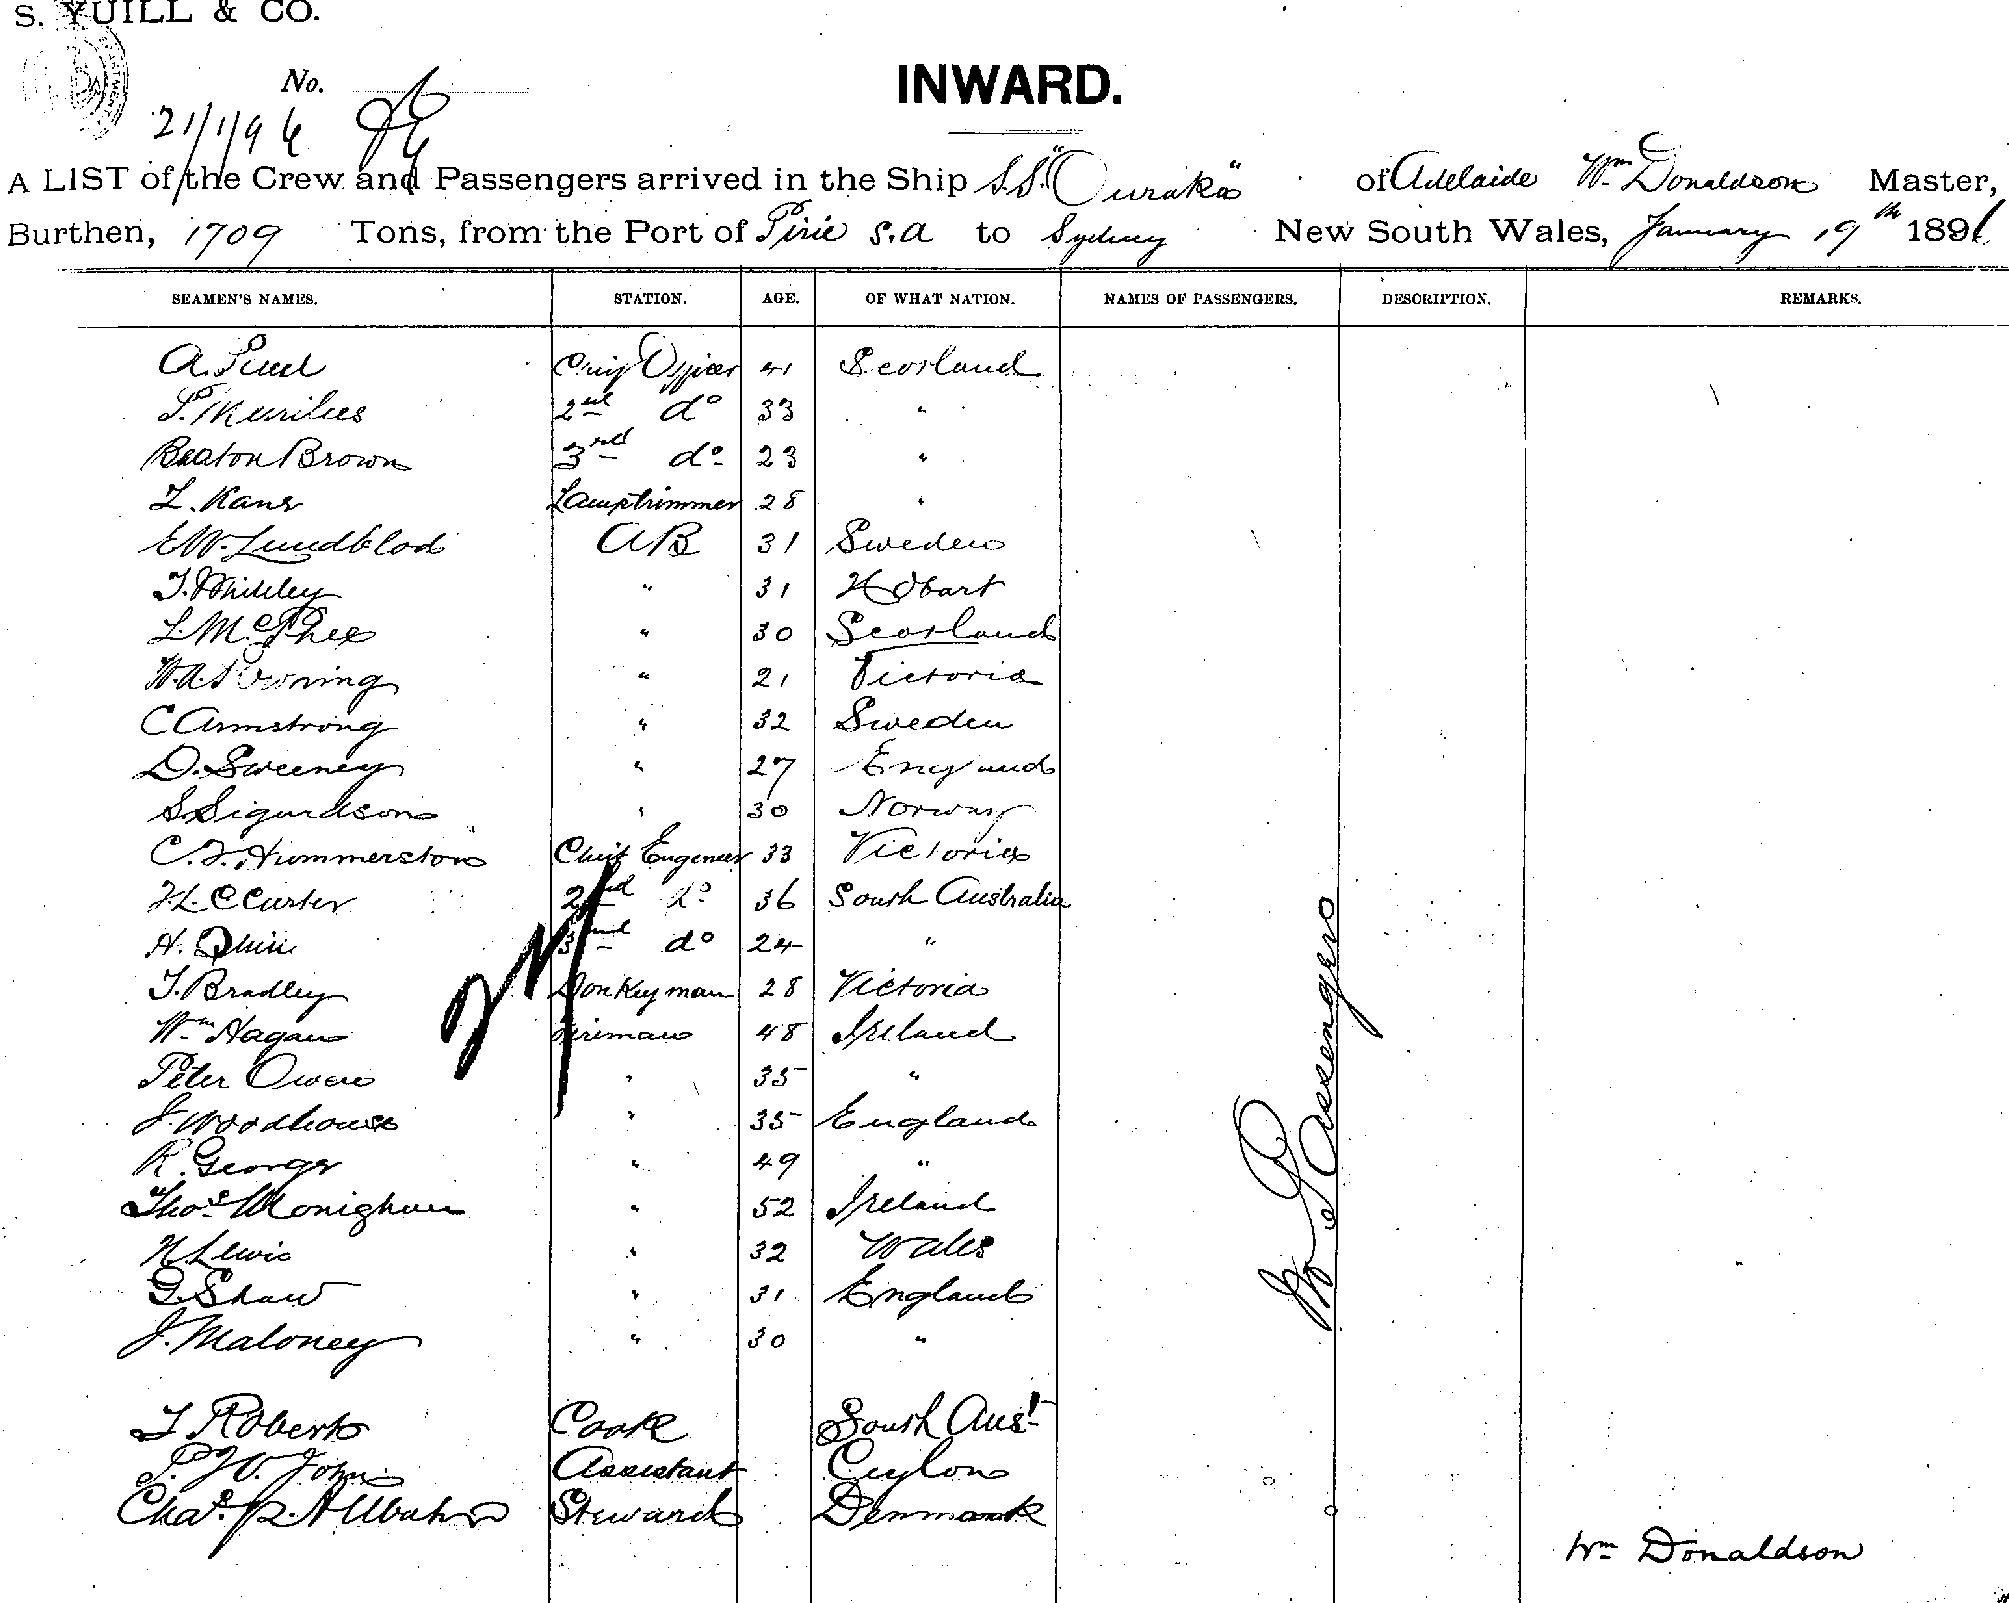 S. YUILL & CO.
No.
21/1/96
INWARD.
A LIST of the Crew and Passengers arrived in the Ship S.S. "Ouraka" of Adelaide Wm Donaldson Master,
Burthen, 1709 Tons, from the Port of Pirie S.A to Sydney New South Wales, January 19th 1896
SEAMEN'S NAMES. STATION. AGE. OF WHAT NATION. NAMES OF PASSENGERS. DESCRIPTION. REMARKS.
A. Chief Officer 41 Scotland
2nd do 33 "
Beaton Brown 3rd do 23 "
L. Kane Lamptrimmer 28 "
E.W. Lundblod AB 31 Sweden
T. Whitley " 31 Hobart
L. McPhee " 30 Scotland
W.A. Downing " 21 Victoria
C Armstrong " 32 Sweden
D. Sweeney " 27 England
S Sigurdson " 30 Norway
C.F. Hummerston Chief Engeneer 33 Victoria
H.L.C Curter 2nd do 36 South Australia
H. Quin 3rd do 24 "
T. Bradley Donkeyman 28 Victoria
Wm Hagan Fireman 48 Ireland
Peter Owens " 35 "
J. Woodhouse " 35 England
R. George " 49 "
Thos Monighan " 52 Ireland
H. Lewis " 32 Wales
G. Shaw " 31 England
J. Maloney " 30 "
T Roberts Cook South Aust
P. W. John Assistant Ceylon
Chas. Steward Denmark
No Passengers
Wm Donaldson